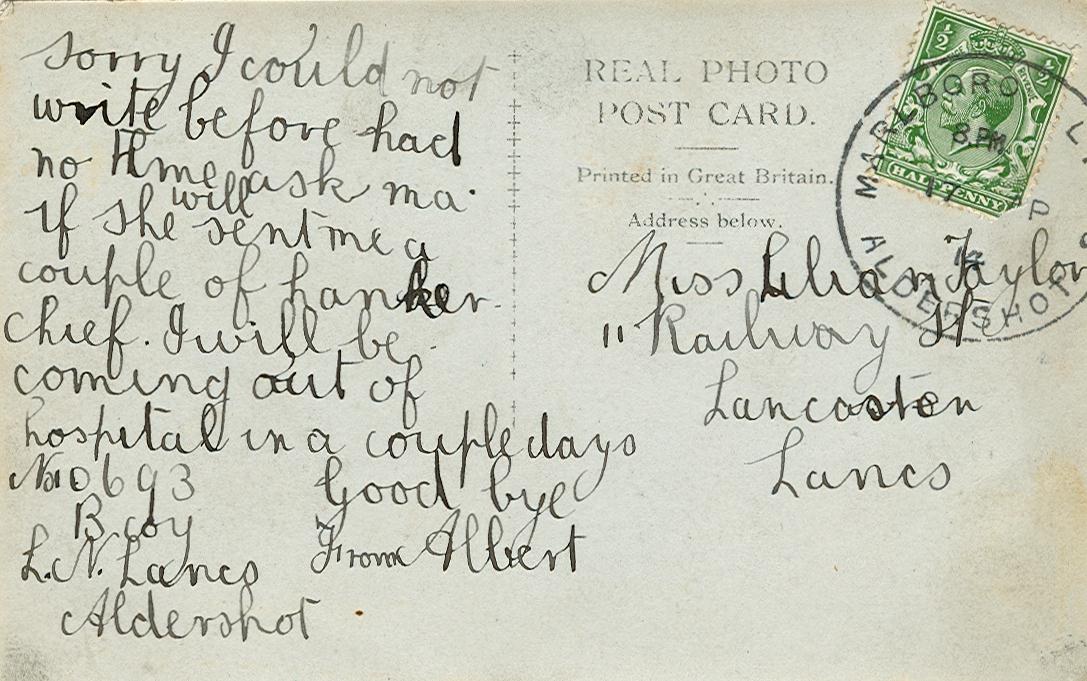 sorry I could not
write before had
no time ask ma
if she will sent me a
couple of hanker-
chief. I will be
coming out of
hospital in a couple days
No 10693
B coy
L.N. Lancs
Aldershot
Good bye
From Albert
REAL PHOTO
POST CARD.
Printed in Great Britain.
Address below.
Miss Lilian Taylor
11 Railway St
Lancaster
Lancs
½ ½
HALFPENNY
MARLBORO
ALDERSHOT
8. PM
17 AP
14